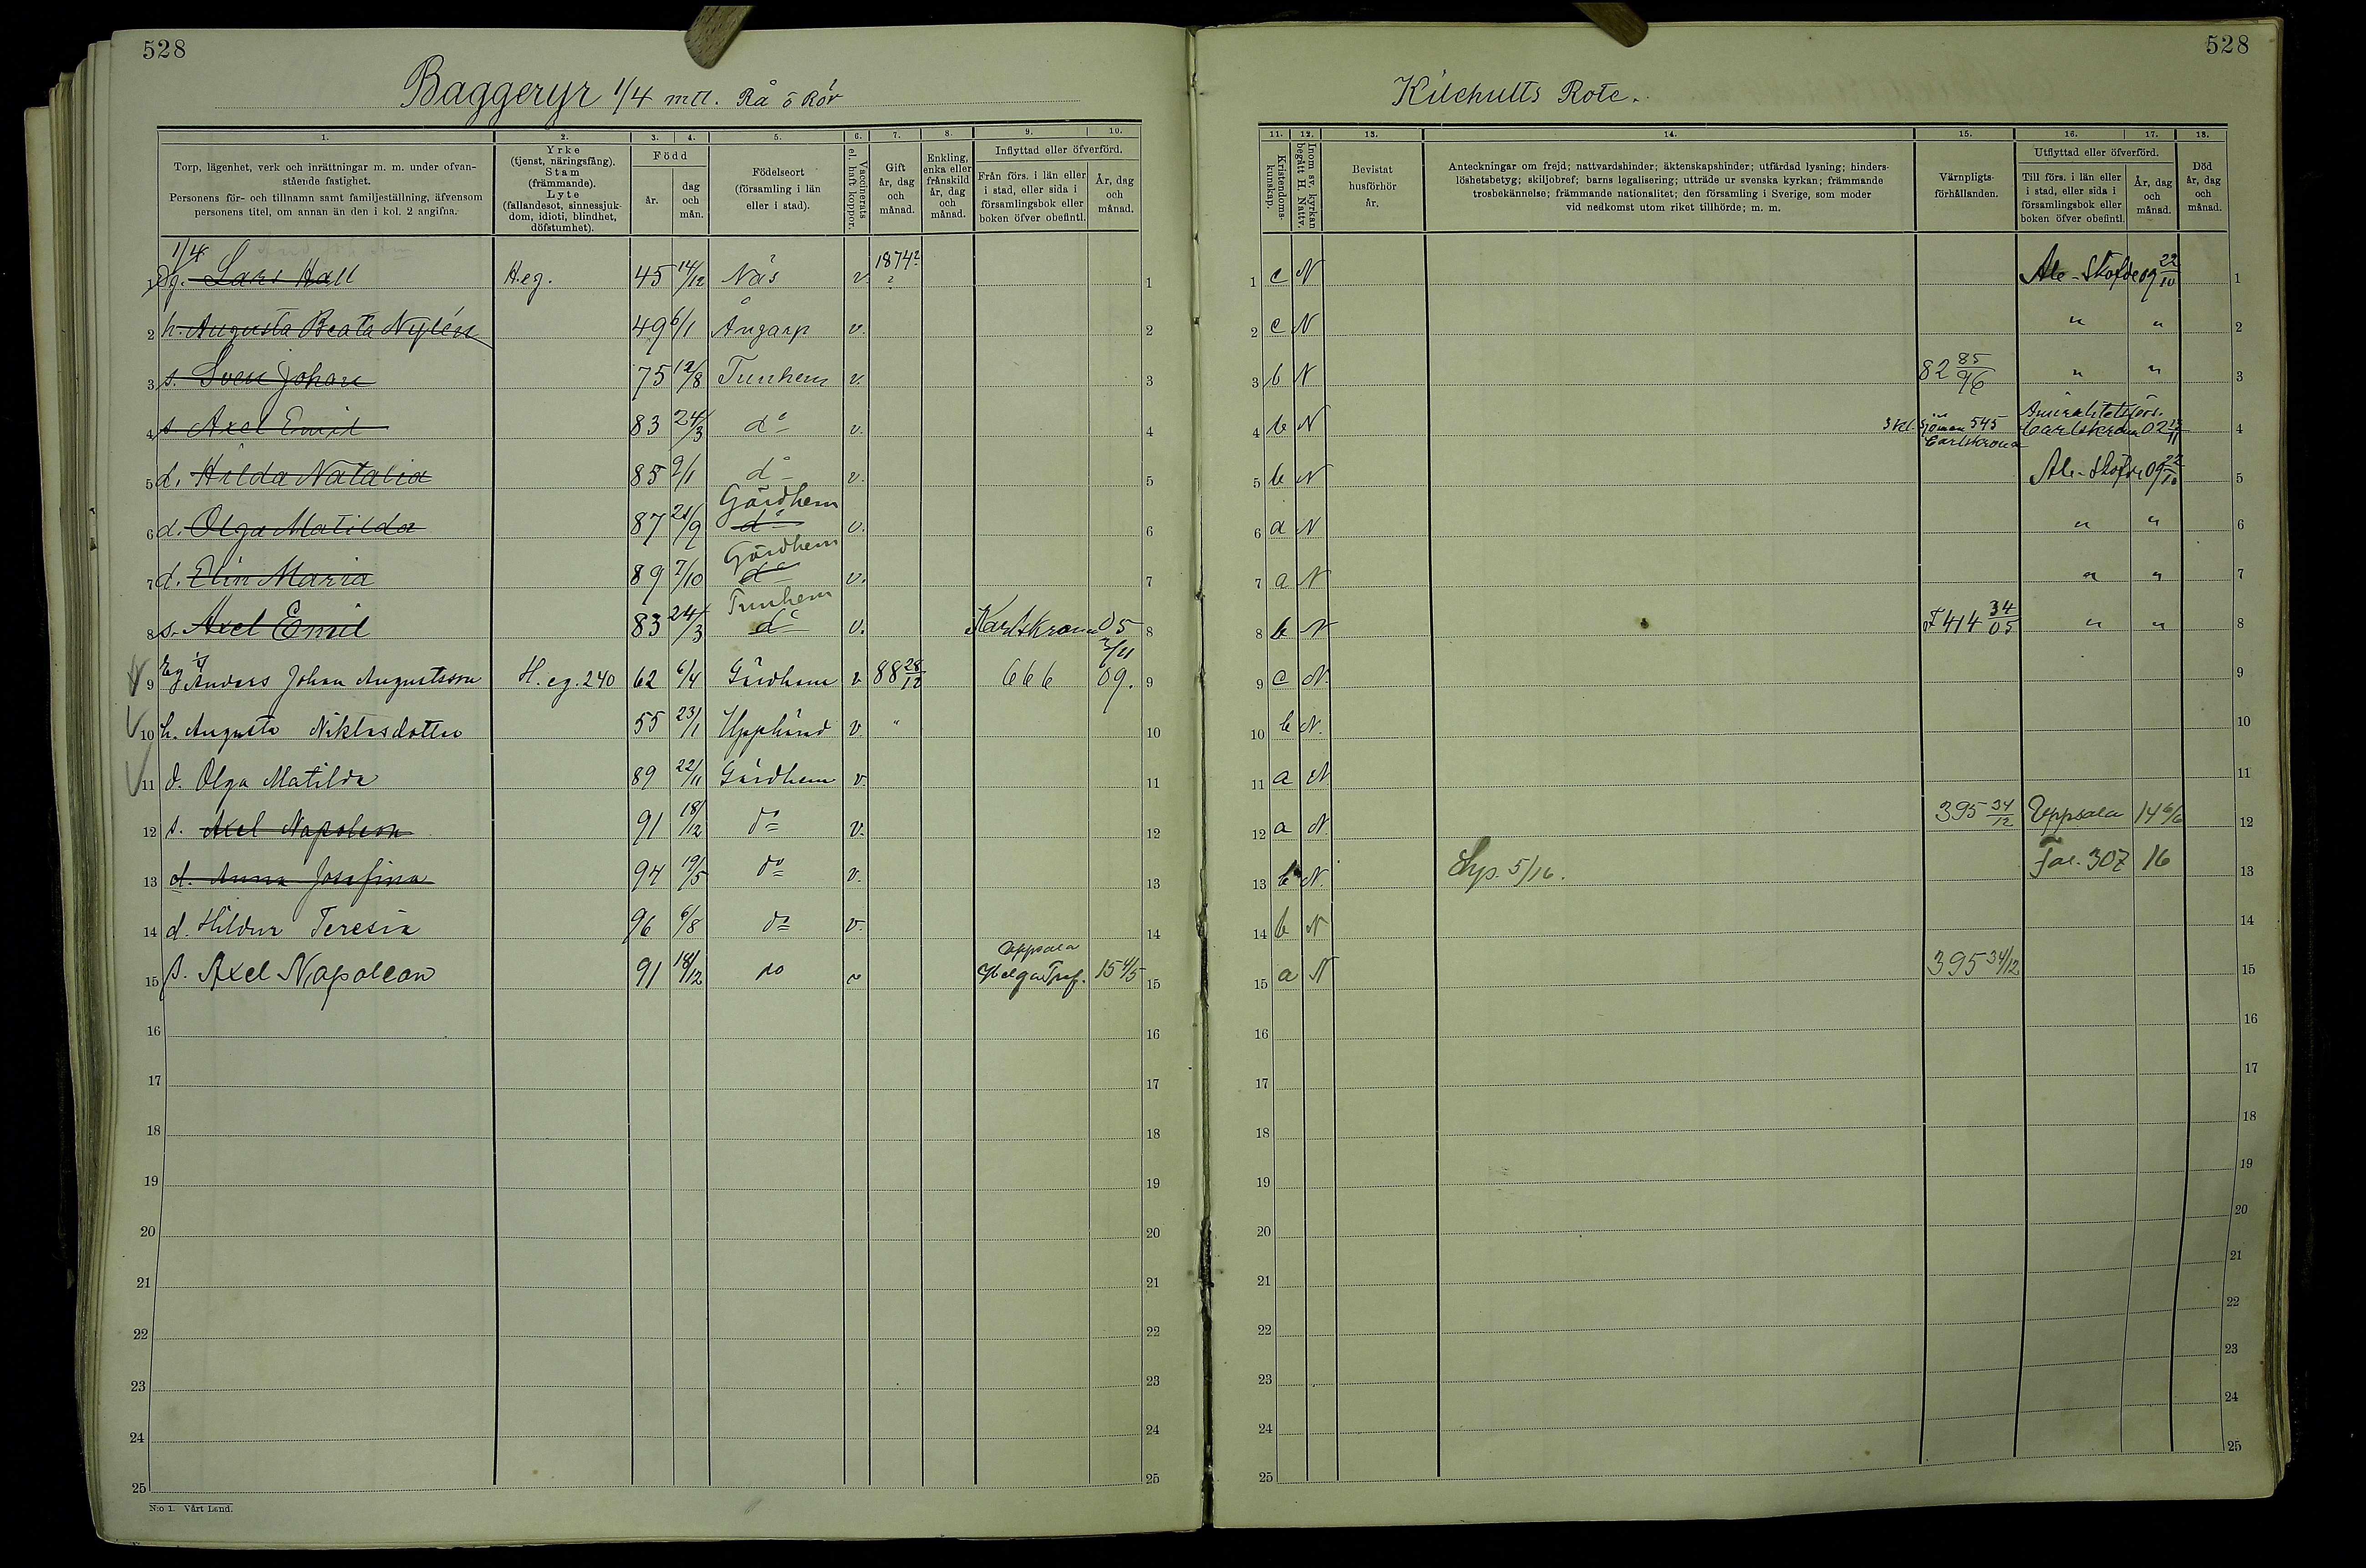 528
Baggeryr 1/4 mtl. Rå ö Rör
1. 2. 3. 4. 5. 6. 7. 8. 9. 10.
Torp, lägenhet, verk och inrättningar m. m. under ofvanstående fastighet.
Personens för- och tillnamn samt familjeställning, äfvensom personens titel, om annan än den i kol. 2 angifna.
Yrke (tjenst, näringsfång). Stam (främmande). Lyte (fallandesot, sinnessjukdom, idioti, blindhet, döfstumhet).
Född
år.
dag och mån.
Födelseort (församling i län eller i stad).
Vaccinerats el. haft koppor.
Gift år, dag och månad.
Enkling, enka eller frånskild år, dag och månad.
Inflyttad eller öfverförd.
Från förs. i län eller i stad, eller sida i församlingsbok eller boken öfver obefintl.
År, dag och månad.
1/4
1 Eg. Lars Hall H.eg. 45 14/12 Näs v. 1874? ? 1
2 h. Augusta Beata Nylén 49 6/1 Ångarp v. 2
3 s. Sven Johan 75 12/8 Tunhem v. 3
4 s. Axel Emil 83 24/3 do v. 4
5 d. Hilda Natalia 85 9/1 do v. 5
Gärdhem
6 d. Olga Matilda 87 21/9 do v. 6
Gärdhem
7 d. Elin Maria 89 7/10 do v. 7
Tunhem
8 s. Axel Emil 83 24/3 do v. Karlskrona 05 8
2/11
9 Eg 1/4 Anders Johan Augustsson H. eg. 240 62 6/4 Gärdhem v 88 28/12 666 09. 9
10 h. Augusta Niklasdotter 55 23/1 Upphärad v. " 10
11 d. Olga Matilda 89 22/11 Gärdhem v. 11
12 s. Axel Napoleon 91 18/12 do v. 12
13 d. Anna Josefina 94 19/5 do v. 13
14 d. Hildur Teresia 96 6/8 do v. 14
Uppsala
15 s. Axel Napoleon 91 18/12 do v Helga Tref. 15 4/5 15
16 16
17 17
18 18
19 19
20 20
21 21
22 22
23 23
24 24
25 25
N:o 1. Vårt Land.
528
Kilehults Rote.
11. 12. 13. 14. 15. 16. 17. 18.
Kristendomskunskap.
Inom sv. kyrkan begått H. Nattv.
Bevistat husförhör år.
Anteckningar om frejd; nattvardshinder; äktenskapshinder; utfärdad lysning; hinderslöshetsbetyg; skiljobref; barns legalisering; utträde ur svenska kyrkan; främmande trosbekännelse; främmande nationalitet; den församling i Sverige, som moder vid nedkomst utom riket tillhörde; m. m.
Värnpligtsförhållanden.
Utflyttad eller öfverförd.
Till förs. i län eller i stad, eller sida i församlingsbok eller boken öfver obefintl.
År, dag och månad.
Död år, dag och månad.
1 c N Ale-Sköfde 09 22/10 1
2 c N " " 2
3 b N 82 85/96 " " 3
Amiralitetsförs.
4 b N 3 kl. Sjöman 545 Carlskrona Carlskrona 02 15/11 4
5 b N Ale-Sköfde 09 22/10 5
6 a N " " 6
7 a N " " 7
8 b N F 414 34/05 " " 8
9 c N 9
10 b N. 10
11 a N 11
12 a N. 395 34/12 Uppsala 14 6/6 12
13 b N. Lys. 5/16. Fol. 307 16 13
14 b N 14
15 a N 395 34/12 15
16 16
17 17
18 18
19 19
20 20
21 21
22 22
23 23
24 24
25 25